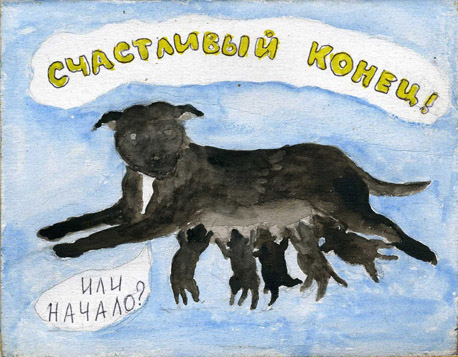 СЧАСТЛИВЫЙ КОНЕЦ!
ИЛИ
НАЧАЛО?